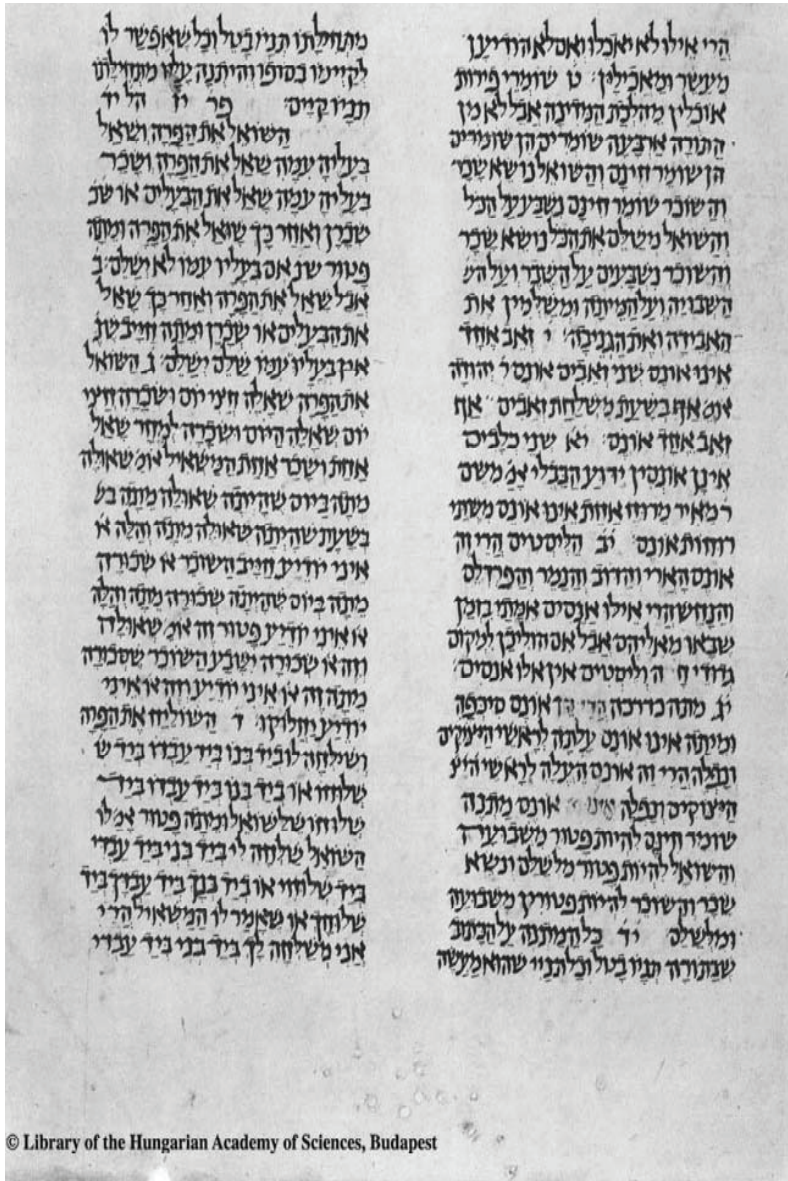 הרי אילו לא יאכלו ואם לא הודיען
מעשר ומאכילין׃ ט שומרי פירות
אוכלין מהלכת המדינה אבל לא מן
התורה ארבעה שומרים הן שומרים
הן שומר חינם והשואל נושא שכר
והשוכר שומר חינם נשבע על הכל
והשואל משלם את הכל נושא שכר
והשוכר נשבעים על השבר ועל הש
השבויה ועל המיתה ומשלמין את
האבידה ואת הגניבה׃ י זאב אחד
אינו אונס שני זאבים אונס ר׳ יהודה
אומ׳ אף בשעת משלחת זאבים אף
זאב אחד אונס׃ יא שני כלבים
אינן אונסין ידוע הבבלי אמ׳ משם
ר מאיר מרוח אחת אינו אונס משתי
רוחות אונס׃ יב הליסטים הרי זה
אונס הארי והדוב והנמר והפרדלס
והנחש הרי אילו אנסים אמתי בזמן
שבאו מאליהם אבל אם הוליכן למקום
גדודי ח ה וליסטים אין אלו אנסים׃
יג מתה כדרכה הרי זו אונס סיכפה
ומיתה אינו אונס עלתה לראשי היצוקים
ונפלה הרי זה אונס העלה לראשי היצ
היצוקים ונפלה אינו אונס מתנה
שומר חינם להיות פטור משבועה
והשואל להיות פטור מלשלם ונשא
שכר והשוכר להיות פטורין משבועה
ומלשלם׃ יד כל המתנה על הכתוב
שבתורה תניו בטל וכל תניי שהוא מעשה
מתחילתו תניו בטל וכל שאפשר לו
לקיימו בסופו והיתנה עליו מתחילתו
תניו קיים׃ פר יז הל יד
השואל את הפרה ושאל
בעליה עמה שאל את הפרה ושכר
בעליה עמה שאל את הבעלים או שכ
שכרן ואחר כך שואל את הפרה ומתה
פטור שנ אם בעליו עמו לא ישלם׃ ב
אבל שאל את הפרה ואחר כך שאל
את הבעלים או שכרן ומתה חייב שנ
אין בעליו עמו שלם ישלם׃ ג השואל
את הפרה שאלה חצי יום ושכרה חצי
יום שאלה היום ושכרה למחר שאל
אחת ושכר אחת המשאיל אומ׳ שאולה
מתה ביום שהייתה שאולה מתה בש
בשעת שהיתה שאולה מתה והלה או
איני יודיע חייב השוכר או שכורה
מתה ביום שהייתה שכורה מתה והלה
או איני יודיע פטור זה אומ׳ שאולה
וזה או שכורה ישבע השוכר שסכורה
מתה זה או איני יודיע וזה או איני
יודיע יחלוקו׃ ד השולח את הפרה
ושילחה לו ביד בנו ביד עבדו ביד ש
שלוחו או ביד בנו ביד עבדו ביד
שלוחו שלשואל ומתה פטור אמ׳ לו
השואל שלחה לי ביד בני ביד עבדי
ביד שלוחי או ביד בנך ביד עבדך ביד
שלוחך או שאמר לו המשאיל הרי
אני משלחה לך ביד בני ביד עבדי
© Library of the Hungarian Academy of Sciences, Budapest